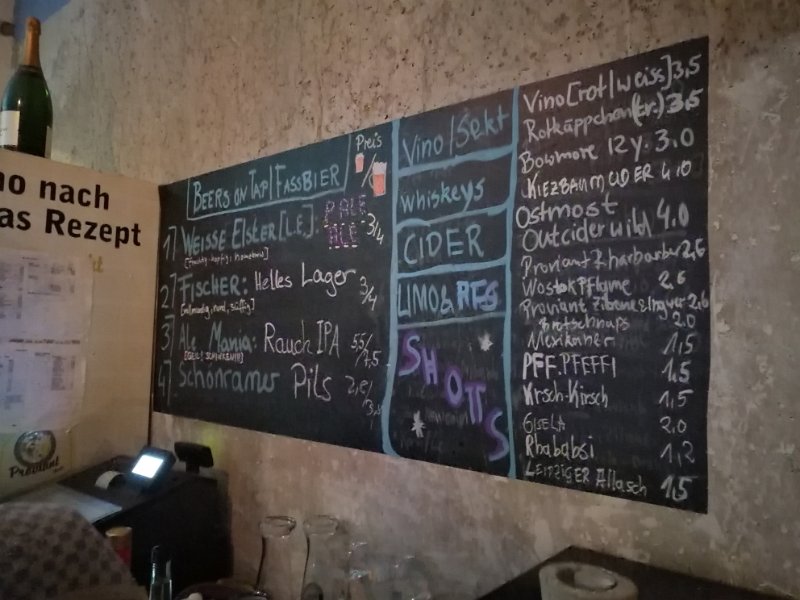 no nach
as Rezept
Proviant
BEERS ON TAP | FASSBIER
Preis
1] WEISSE ELSTER [L.E.]: PALE ALE 3/4
2] FISCHER: Helles Lager 3/4
[vollmundig, rund, süffig]
3] Ale Mania: Rauch IPA 5,5/7,5
4] Schönramer Pils
Vino/Sekt
whiskeys
CIDER
LIMO& RFS
SHOTTS
Vino [rot/weiss] 3,5
Rotkäppchen (tr.) 3,5
Bowmore 12 y. 3.0
KIEZBAUM CIDER 4.10
Ostmost
Outciderwild 4.0
Proviant Rharbarber 2,6
Wostok Pflaume 2,6
Proviant Zitrone & Ingwer 2,6
Brotschnaps 2.0
Mexikaner 1,5
PFF.PFEFFI 1,5
Kirsch-Kirsch 1,5
GISELA 2,0
Rhababsi 1,2
LEIPZIGER Allasch 1,5